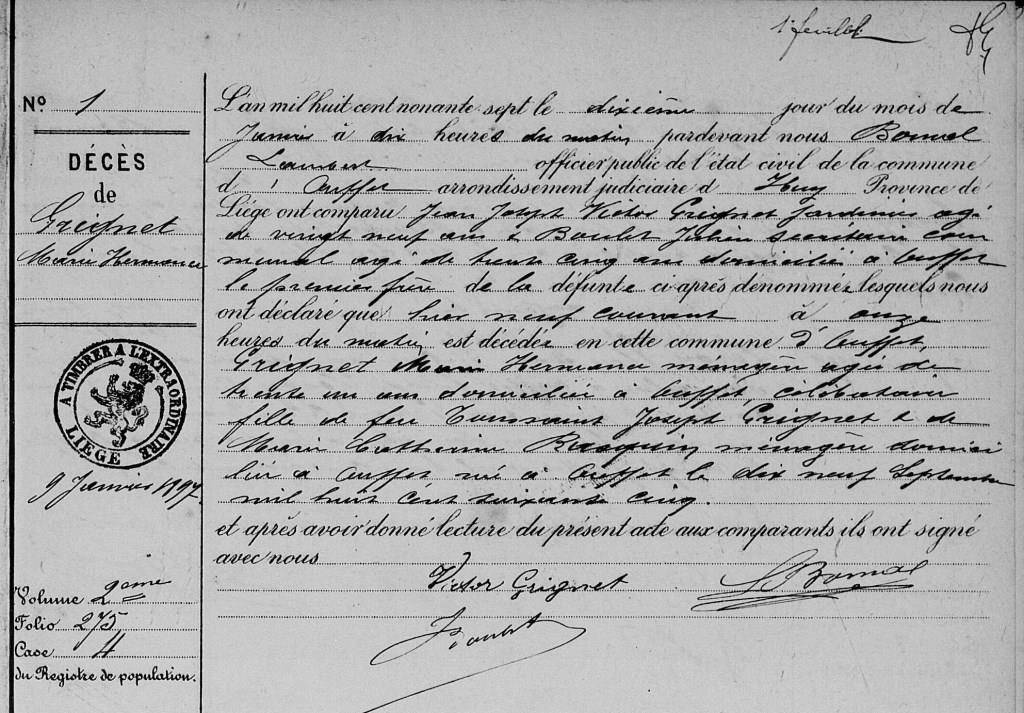 1r feuillet
No 1
DÉCÈS
de
Grignet
Marie Hermance
A TIMBRER A L'EXTRAORDINAIRE
LIEGE
9 Janvier 1897.
Volume 2eme
Folio 275
Case 4
du Registre de population.
L'an mil huit cent nonante sept le dixième jour du mois de
Janvier à dix heures du matin pardevant nous Bonmal
Lambert officier public de l'état civil de la commune
d'Ouffet arrondissement judiciaire d Huy Province de
Liége ont comparu Jean Joseph Victor Grignet Jardinier agé
de vingt neuf ans & Boulet Julien secrétaire com
munal agé de trente cinq ans domiciliés à Ouffet
le premier frère de la défunte ci-après dénommée lesquels nous
ont déclaré que hier neuf courant à onze
heures du matin est décédée en cette commune d'Ouffet,
Grignet Marie Hermance ménagère agée de
trente un ans domiciliée à Ouffet, célibataire
fille de feu Toussaint Joseph Grignet & de
Marie Catherine ménagère domici
liée à Ouffet née à Ouffet le dix neuf Septembre
mil huit cent soixante cinq.
et après avoir donné lecture du présent acte aux comparants ils ont signé
avec nous
Victor Grignet
L Bonmal
J Boulet